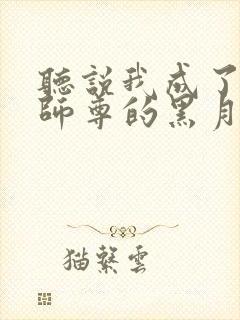 聽說我成了
師尊的黑月
猫繫雲